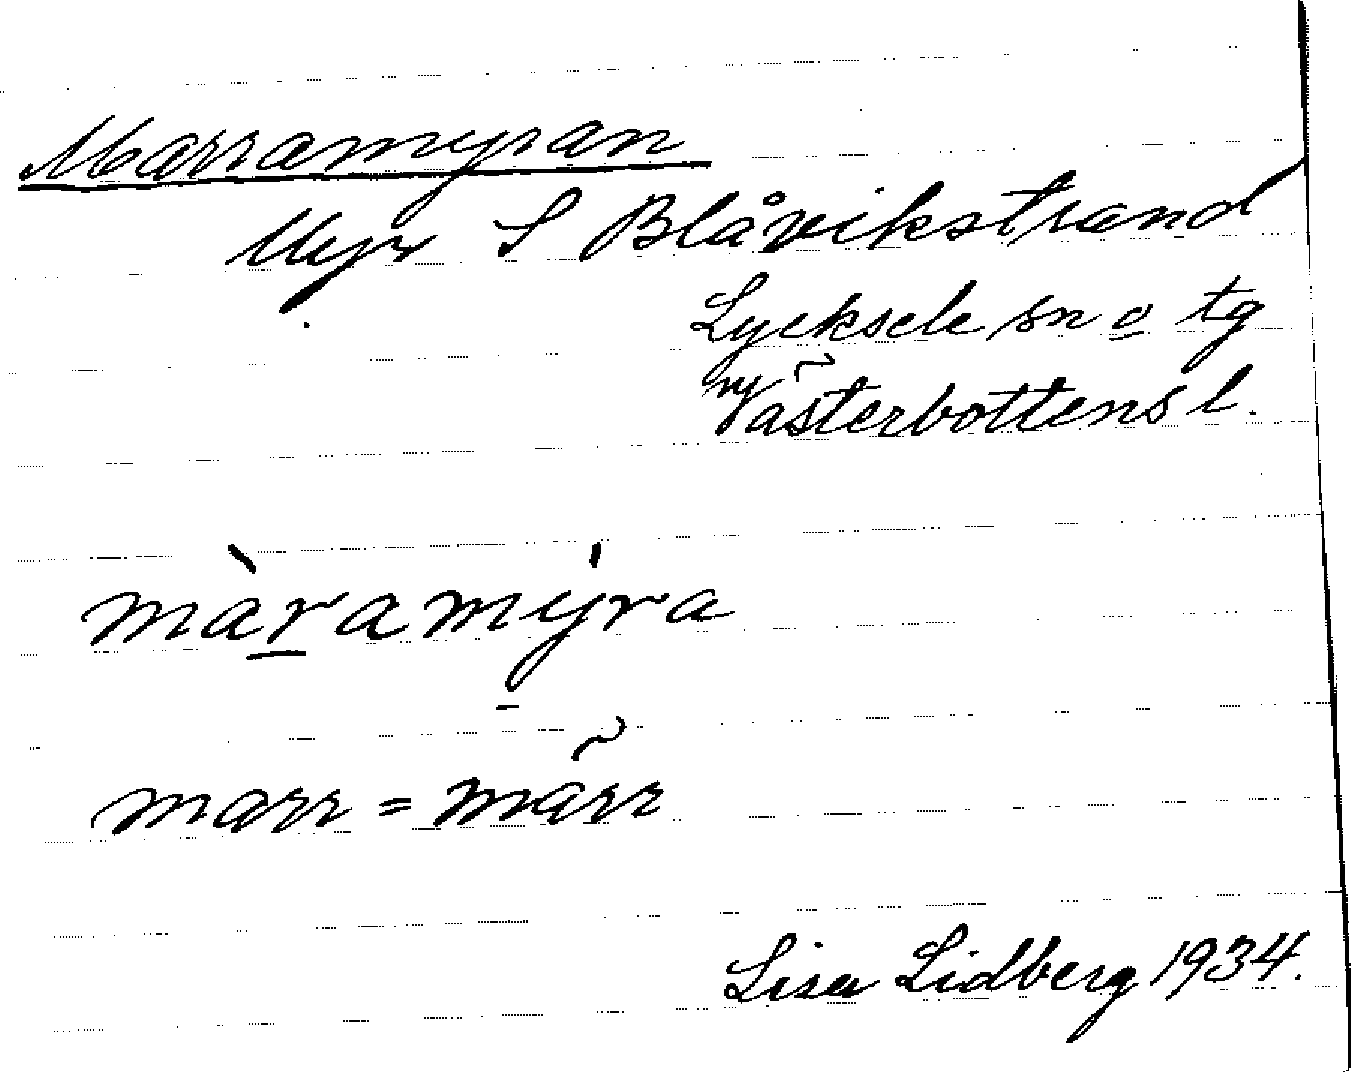 Marramyran
Myr S Blåvikstrand
Lycksele sn o tg
Västerbottens l.
màramýra
marr = märr
Lisa Lidberg 1934.